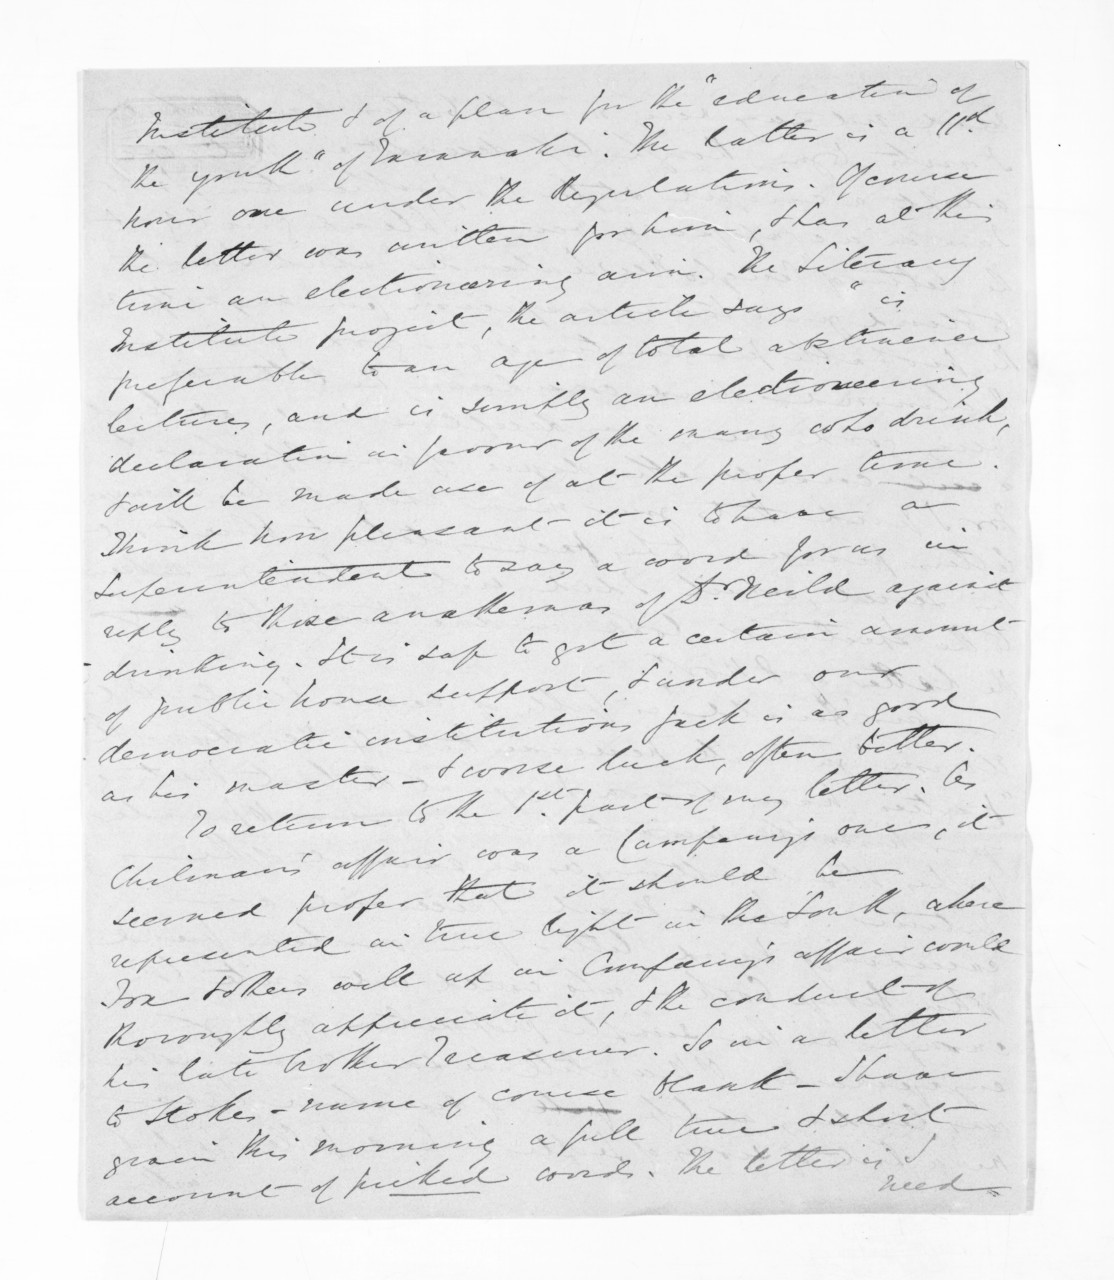 Institute & of a plan for the "education of
the youth" of Taranaki. The latter is a 11d
hour one under the Regulations. Of course
the letter was written for him, & has at this
time an electioneering aim. The Literary
Institute project, the article says "is
preferable to an age of total abstinence
lectures, and is simply an electioneering
declaration in favour of the many who drink,
& will be made use of at the proper time.
Think how pleasant it is to have a
Superintendent to say a word for us in
reply to those anathemas of Dr. Neild against
drinking. It is safe to get a certain amount
of public house support, & under our
democratic institutions Jack is as good
as his master – & worse luck, often better.
To return to the 1st. part of my letter. As
Chilman's affair was a Company's one, it
seemed proper that it should be
represented in true light in the South, where
Fox & others well up in Company's affair would
thoroughly appreciate it, & the conduct of
his late brother Treasurer. So in a letter
to Stokes – name of course blank – I have
given this morning a full true & short
account of picked words. The letter is I
need